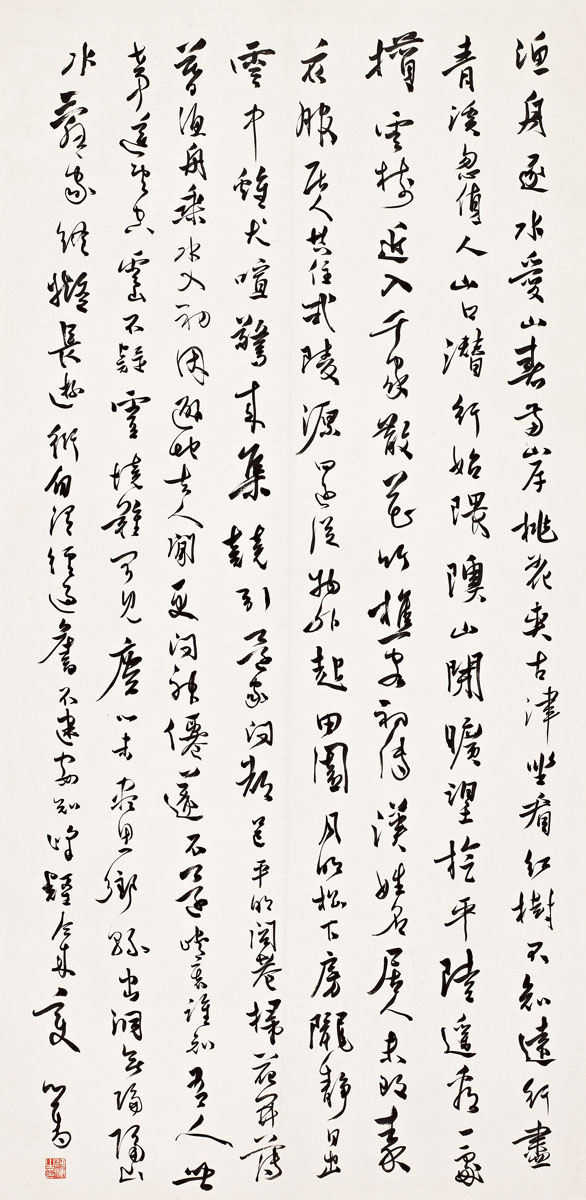 漁舟逐水愛山春兩岸桃花夾古津坐看紅樹不知遠行盡
青溪忽值人山口潛行始隈隩山開曠望旋平陸遙看一處
攢雲樹近入千家散花竹樵客初傳漢姓名居人未改秦
衣服居人共住武陵源還從物外起田園月明松下房櫳靜日出
雲中雞犬喧驚來集競引還家問都邑平明閭巷掃花開薄
暮漁舟乘水入初因避地去人間更問神僊遂不還峽裏誰知有人世
事遙望空雲山不疑靈境難可見塵心未盡思鄉縣出洞無隔山
水辭家終擬長遊衍自謂經過舊不迷安知峰壑今來變 心畬